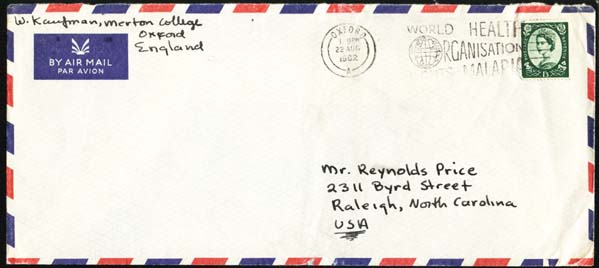 W. Kaufman, Merton College
Oxford
England
BY AIR MAIL
PAR AVION
OXFORD
22 AUG
1962
A
WORLD HEALTH
ORGANISATION
MALARIA
Mr. Reynolds Price
2311 Byrd Street
Raleigh, North Carolina
USA